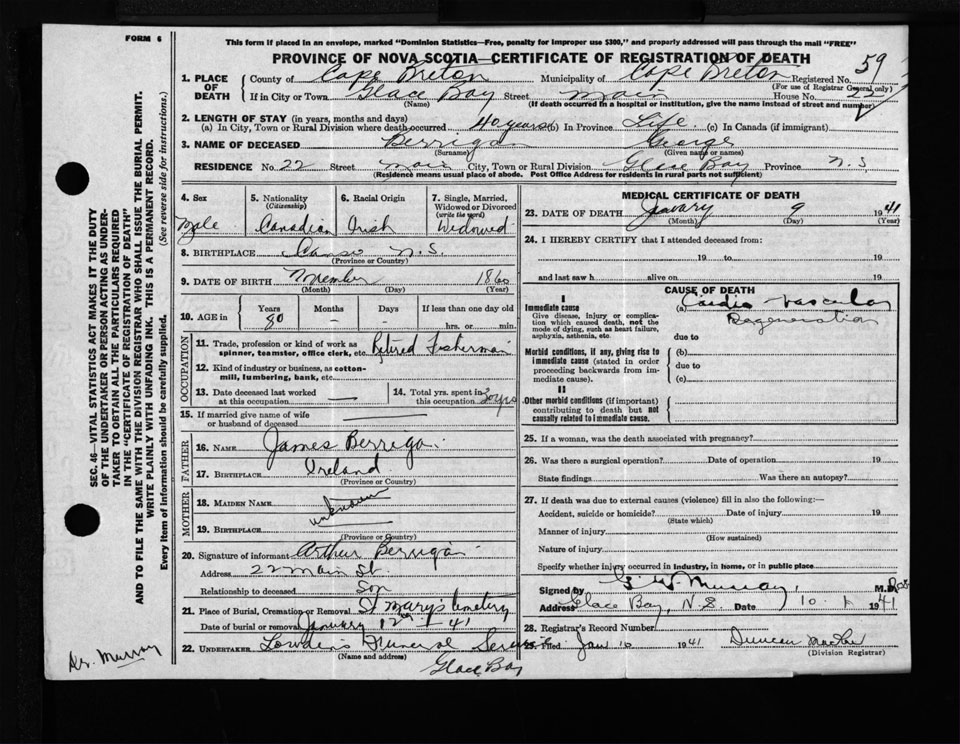 FORM 6
This form if placed in an envelope, marked "Dominion Statistics—Free, penalty for improper use $300," and properly addressed will pass through the mail "FREE"
PROVINCE OF NOVA SCOTIA—CERTIFICATE OF REGISTRATION OF DEATH
59
1. PLACE OF DEATH
County of Cape Breton Municipality of Cape Breton Registered No.
(For use of Registrar General only)
If in City or Town Glace Bay Street Main House No. 22
(Name) (If death occurred in a hospital or institution, give the name instead of street and number)
2. LENGTH OF STAY (in years, months and days)
(a) In City, Town or Rural Division where death occurred 40 years (b) In Province Life (c) In Canada (if immigrant)
3. NAME OF DECEASED Berrigan George
(Surname) (Given name or names)
RESIDENCE No. 22 Street Main City, Town or Rural Division Glace Bay Province N.S.
(Residence means usual place of abode. Post Office Address for residents in rural parts not sufficient)
4. Sex
Male
5. Nationality
(Citizenship)
Canadian
6. Racial Origin
Irish
7. Single, Married, Widowed or Divorced
(write the word)
Widowed
8. BIRTHPLACE Canso N.S.
(Province or Country)
9. DATE OF BIRTH November 1860
(Month) (Day) (Year)
10. AGE in
Years Months Days If less than one day old
80 – – hrs. or min.
OCCUPATION
11. Trade, profession or kind of work as spinner, teamster, office clerk, etc. Retired Fisherman
12. Kind of industry or business, as cotton-mill, lumbering, bank, etc.
13. Date deceased last worked at this occupation
14. Total yrs. spent in this occupation 30 yrs
15. If married give name of wife or husband of deceased
FATHER
16. NAME James Berrigan
17. BIRTHPLACE Ireland
(Province or Country)
MOTHER
18. MAIDEN NAME
unknown
19. BIRTHPLACE
(Province or Country)
20. Signature of informant Arthur Berrigan
Address 22 Main St.
Relationship to deceased Son
21. Place of Burial, Cremation or Removal St Mary's Cemetery
Date of burial or removal January 12th 41
22. UNDERTAKER Lowden's Funeral Service
(Name and address)
Glace Bay
MEDICAL CERTIFICATE OF DEATH
23. DATE OF DEATH January 9 1941
(Month) (Day) (Year)
24. I HEREBY CERTIFY that I attended deceased from:
19 to 19
and last saw h alive on 19
CAUSE OF DEATH
I
Immediate cause
Give disease, injury or complication which caused death, not the mode of dying, such as heart failure, asphyxia, asthenia, etc.
(a) Cardio Vascular
Degeneration
due to
Morbid conditions, if any, giving rise to immediate cause (stated in order proceeding backwards from immediate cause).
(b)
due to
(c)
II
Other morbid conditions (if important) contributing to death but not causally related to immediate cause.
25. If a woman, was the death associated with pregnancy?
26. Was there a surgical operation? Date of operation 19
State findings Was there an autopsy?
27. If death was due to external causes (violence) fill in also the following:—
Accident, suicide or homicide? Date of injury 19
(State which)
Manner of injury
(How sustained)
Nature of injury
Specify whether injury occurred in industry, in home, or in public place
Signed by G. W. Murray M.D.
Address Glace Bay, N.S. Date 10.1 1941
28. Registrar's Record Number
29. Filed Jan 16 1941 Duncan
(Division Registrar)
SEC. 46—VITAL STATISTICS ACT MAKES IT THE DUTY
OF THE UNDERTAKER OR PERSON ACTING AS UNDER-
TAKER TO OBTAIN ALL THE PARTICULARS REQUIRED
IN THE "CERTIFICATE OF REGISTRATION OF DEATH"
AND TO FILE THE SAME WITH THE DIVISION REGISTRAR WHO SHALL ISSUE THE BURIAL PERMIT.
WRITE PLAINLY WITH UNFADING INK. THIS IS A PERMANENT RECORD.
Every item of information should be carefully supplied. (See reverse side for instructions.)
Dr. Murray